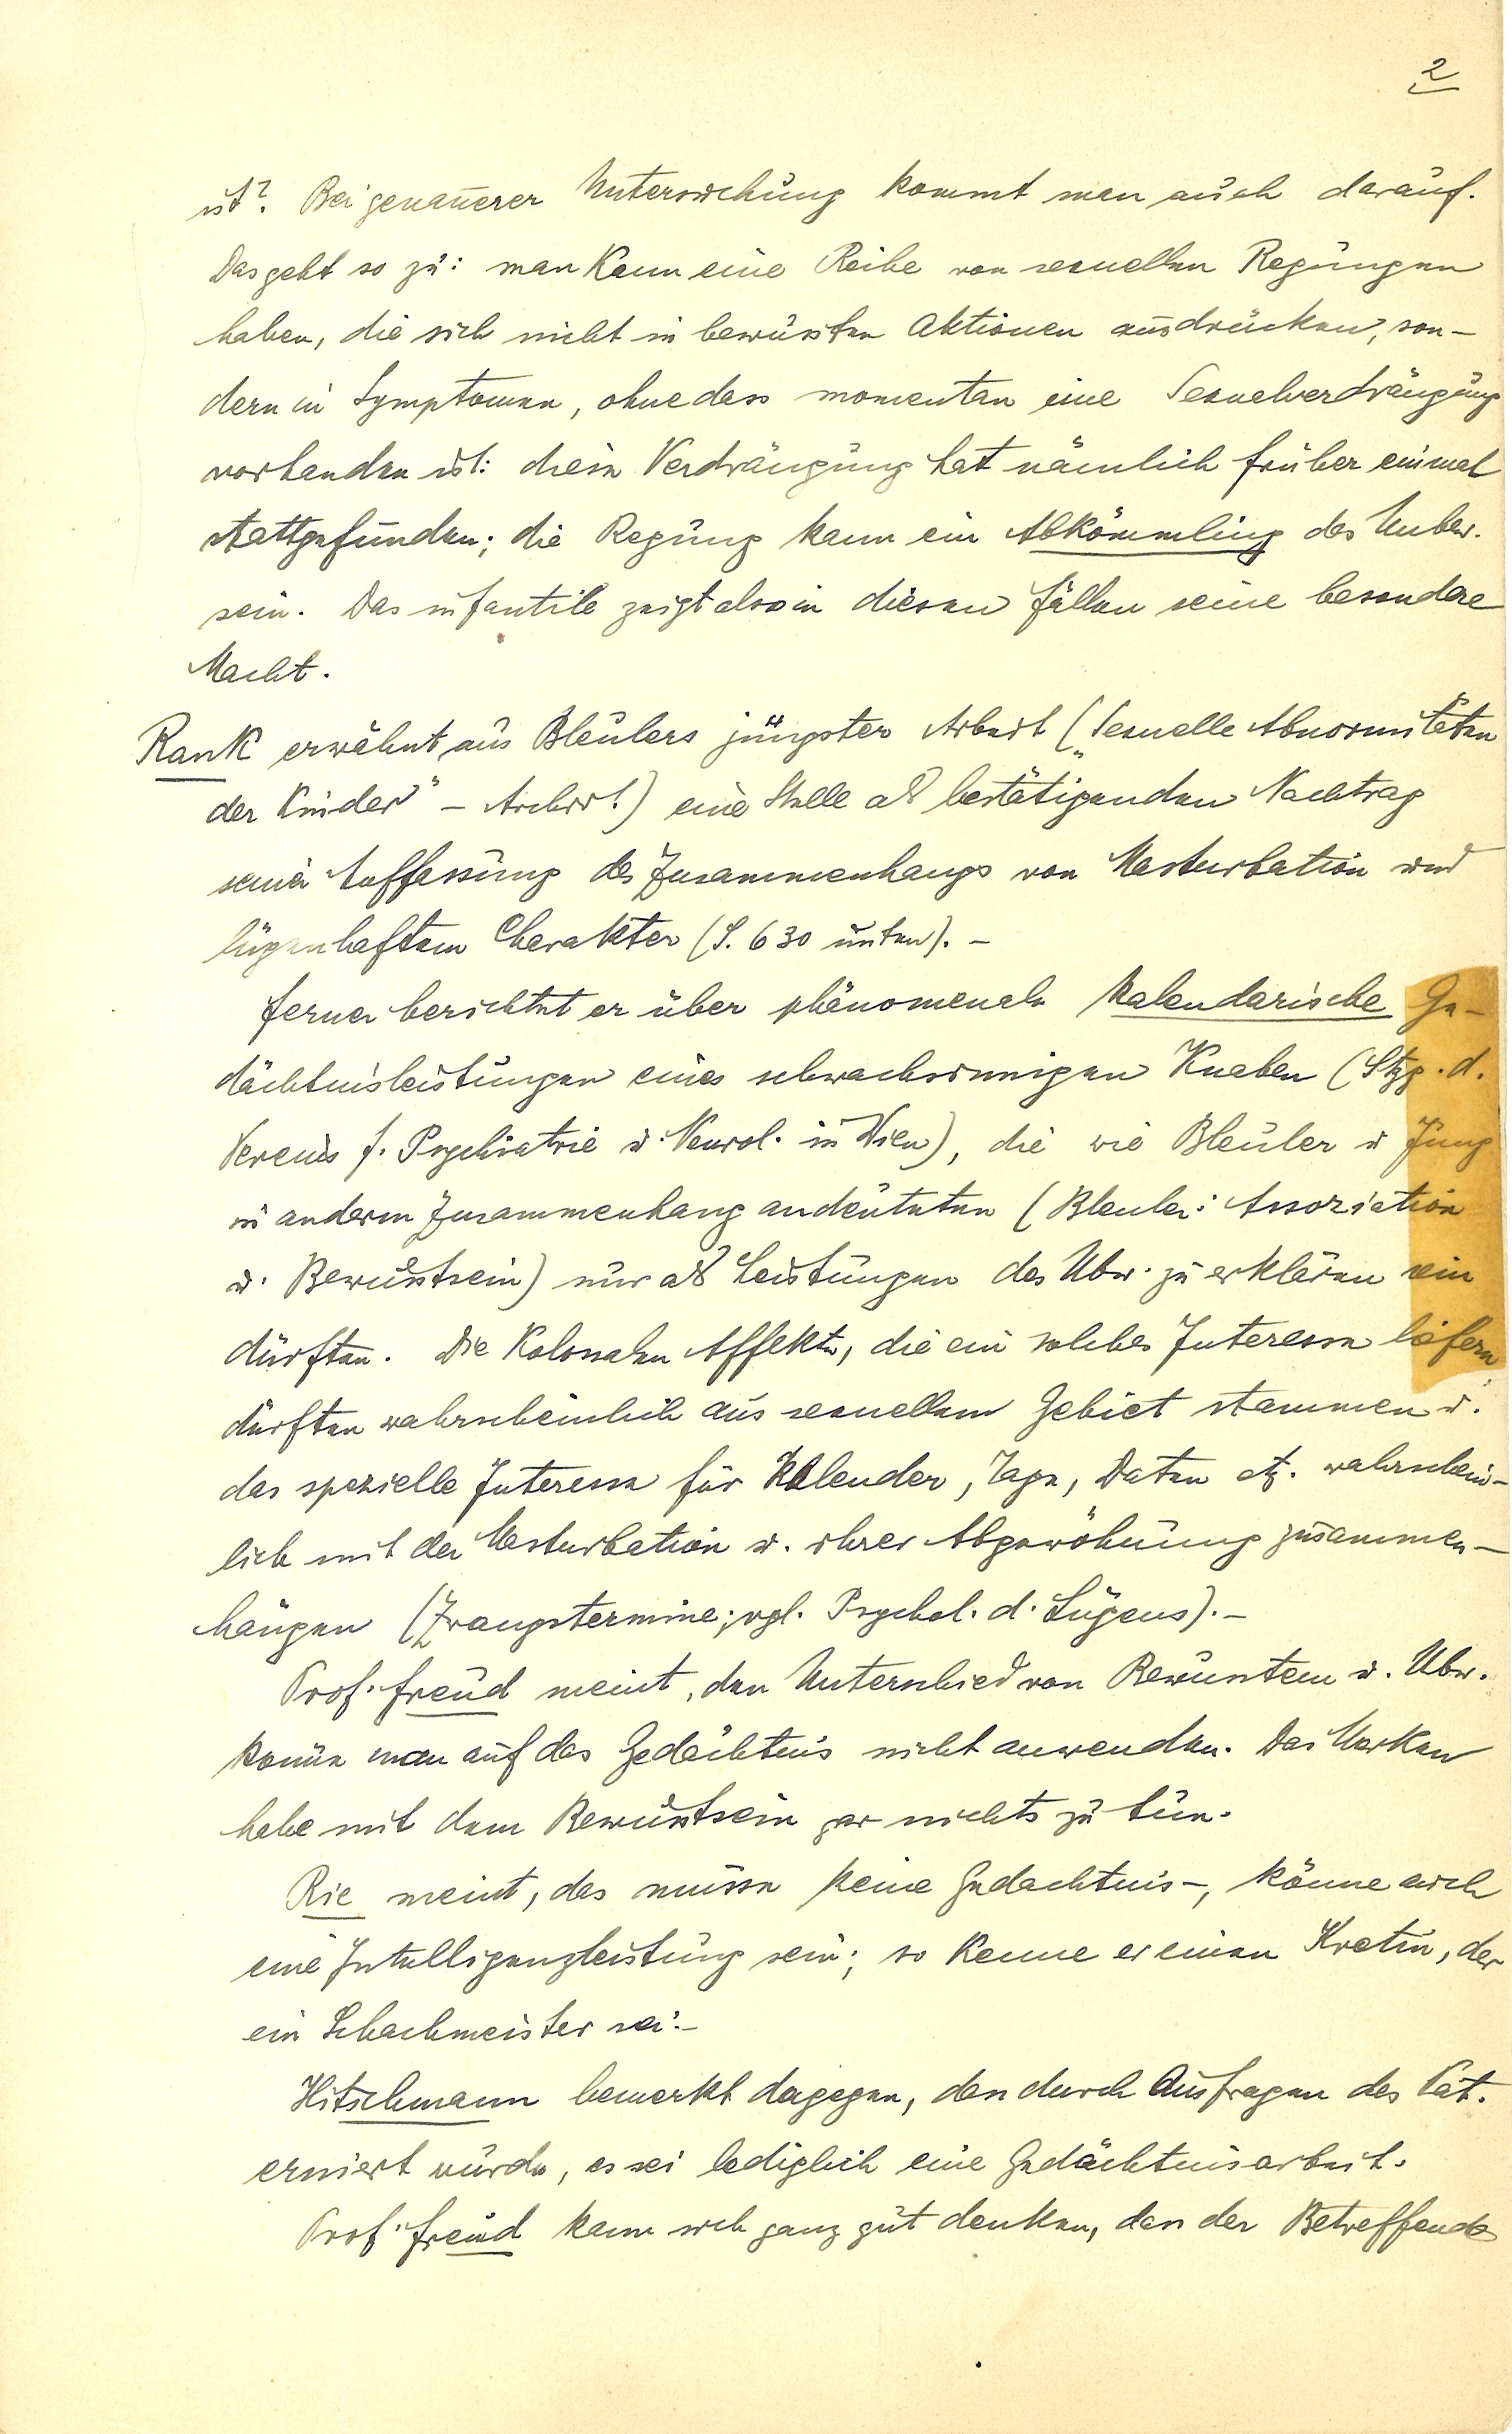 2
ist? Bei genauerer Untersuchung kommt man auch darauf.
Das geht so zu: man kann eine Reihe von sexuellen Regungen
haben, die sich nicht in bewussten Aktionen ausdrücken, son-
dern in Symptomen, ohne dass momentan eine Sexualverdrängung
vorhanden ist: diese Verdrängung hat nämlich früher einmal
stattgefunden; die Regung kann ein Abkömmling des Unbew.
sein. Das infantile zeigt also in diesen Fällen seine besondere
Macht.
Rank erwähnt aus Bleulers jüngster Arbeit („Sexuelle Abnormitäten
der Kinder" – Archiv!) eine Stelle als bestätigenden Nachtrag
seiner Auffassung des Zusammenhangs von Masturbation und
lügenhaftem Charakter (S. 630 unten). –
Ferner berichtet er über phänomenale kalendarische Ge-
dächtnisleistungen eines schwachsinnigen Knaben (Stzg. d.
Vereins f. Psychiatrie u. Neurol. in Wien), die wie Bleuler u Jung
in anderm Zusammenhang andeuteten (Bleuler: Assoziation
u. Bewusstsein) nur als Leistungen des Ubw. zu erklären sein
dürften. Die kolossalen Affekte, die ein solches Interesse liefern,
dürften wahrscheinlich aus sexuellem Gebiet stammen u.
das spezielle Interesse für Kalender, Tage, Daten etz. wahrschein-
lich mit der Masturbation u. ihrer Abgewöhnung zusammen-
hängen (Zwangstermine; vgl. Psychol. d. Lügens). –
Prof. Freud meint, den Unterschied von Bewusstem u. Ubw.
könne man auf das Gedächtnis nicht anwenden. Das Merken
habe mit dem Bewusstsein gar nichts zu tun.
Rie meint, das müsse keine Gedächtnis-, könne auch
eine Intelligenzleistung sein; so kenne er einen Kretin, der
ein Schachmeister sei. –
Hitschmann bemerkt dagegen, dass durch Ausfragen des Pat.
eruiert wurde, es sei lediglich eine Gedächtnisarbeit.
Prof. Freud kann sich ganz gut denken, dass der Betreffende